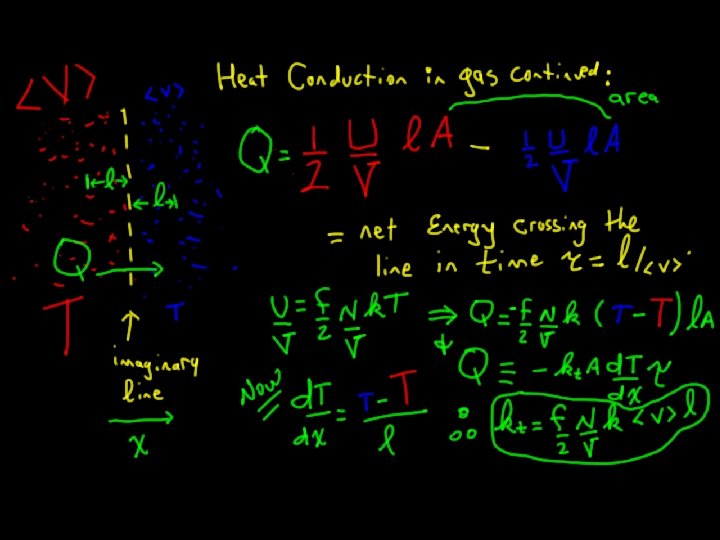 <V>
<v>
Heat Conduction in gas continued:
area
Q = 1/2 U/V l A − 1/2 U/V l A
|←l→|
|←l→|
= net Energy crossing the
line in time τ = l/<v>
Q →
T
T
U/V = f/2 N/V kT ⇒ Q = -f/2 N/V k (T − T) lA
↓
Q ≡ − kₜ A dT/dx τ
Now dT/dx = T − T / l
∴ kₜ = f/2 N/V k <v> l
↑
imaginary
line
→
x